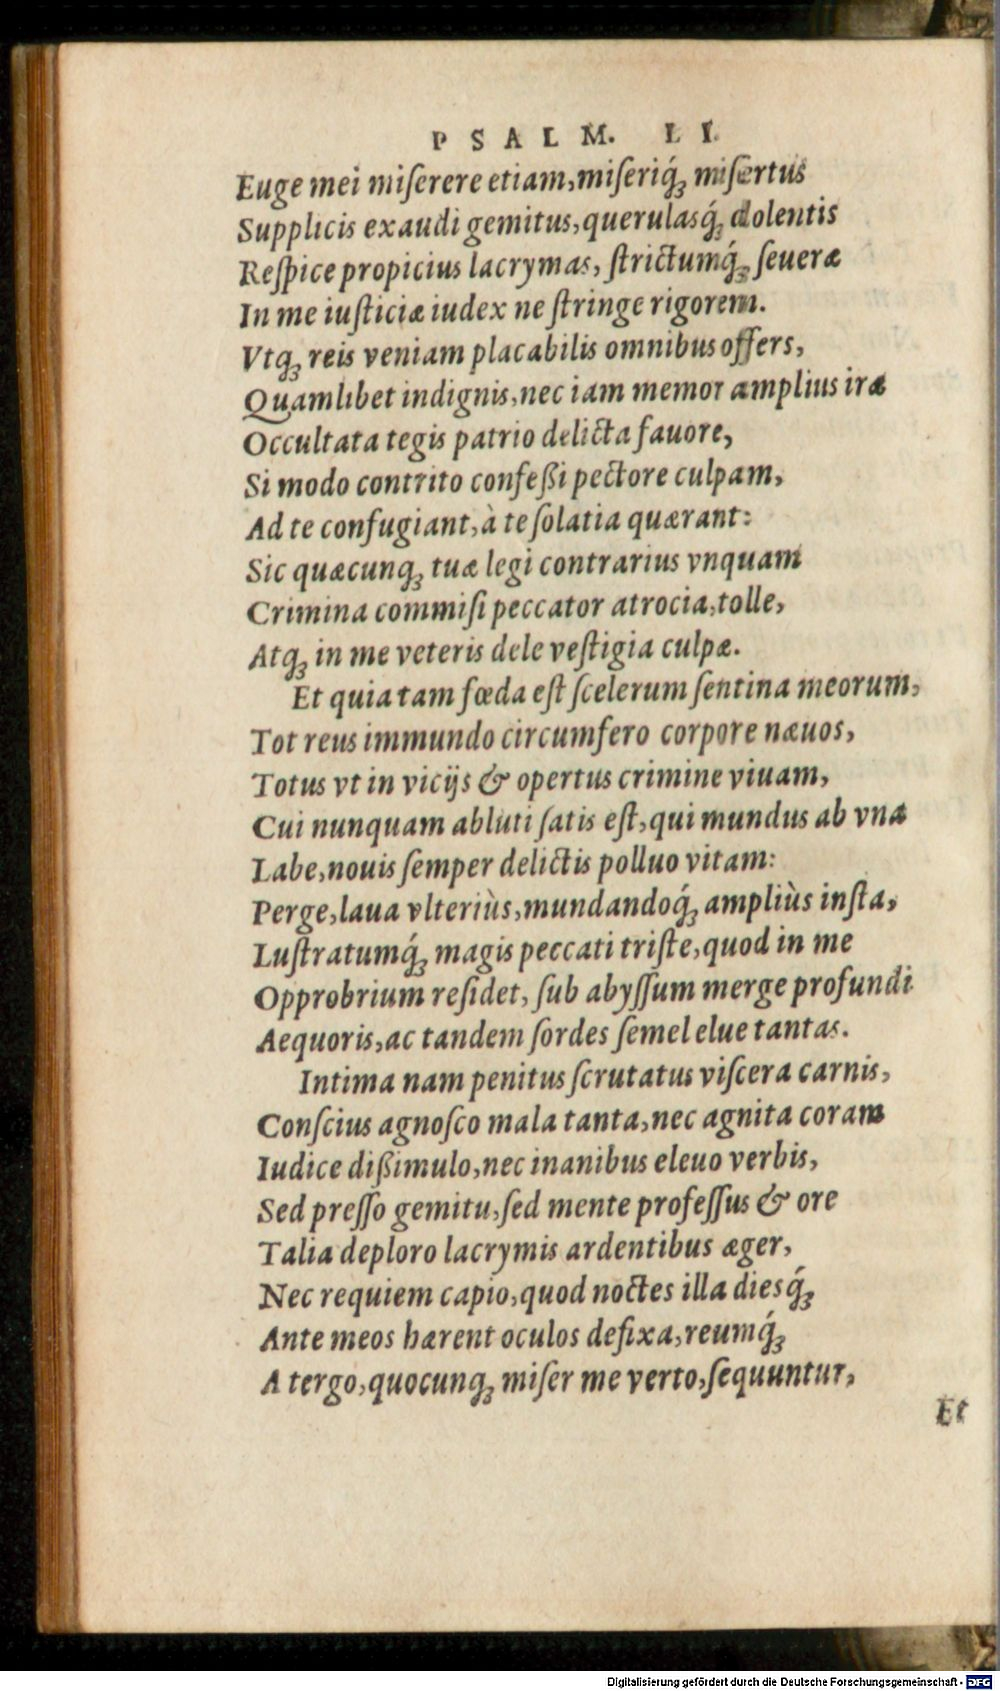 PSALM. LI.
Euge mei miſerere etiam, miſeriq́ꝫ miſertus
Supplicis exaudi gemitus, querulasq́ꝫ dolentis
Reſpice propicius lacrymas, ſtrictumq́ꝫ ſeueræ
In me iuſticiæ iudex ne ſtringe rigorem.
Vtqꝫ reis veniam placabilis omnibus offers,
Quamlibet indignis, nec iam memor amplius iræ
Occultata tegis patrio delicta fauore,
Si modo contrito confeßi pectore culpam,
Ad te confugiant, à te ſolatia quærant:
Sic quæcunqꝫ tuæ legi contrarius vnquam
Crimina commiſi peccator atrocia, tolle,
Atqꝫ in me veteris dele veſtigia culpæ.
Et quia tam fœda eſt ſcelerum ſentina meorum,
Tot reus immundo circumfero corpore næuos,
Totus vt in vicijs & opertus crimine viuam,
Cui nunquam abluti ſatis eſt, qui mundus ab vna
Labe, nouis ſemper delictis polluo vitam:
Perge, laua vlteriùs, mundandoq́ꝫ ampliùs inſta,
Luſtratumq́ꝫ magis peccati triſte, quod in me
Opprobrium reſidet, ſub abyſſum merge profundi
Aequoris, ac tandem ſordes ſemel elue tantas.
Intima nam penitus ſcrutatus viſcera carnis,
Conſcius agnoſco mala tanta, nec agnita coram
Iudice dißimulo, nec inanibus eleuo verbis,
Sed preſſo gemitu, ſed mente profeſſus & ore
Talia deploro lacrymis ardentibus æger,
Nec requiem capio, quod noctes illa diesq́ꝫ
Ante meos hærent oculos defixa, reumq́ꝫ
A tergo, quocunqꝫ miſer me verto, ſequuntur,
Et
Digitalisierung gefördert durch die Deutsche Forschungsgemeinschaft - DFG